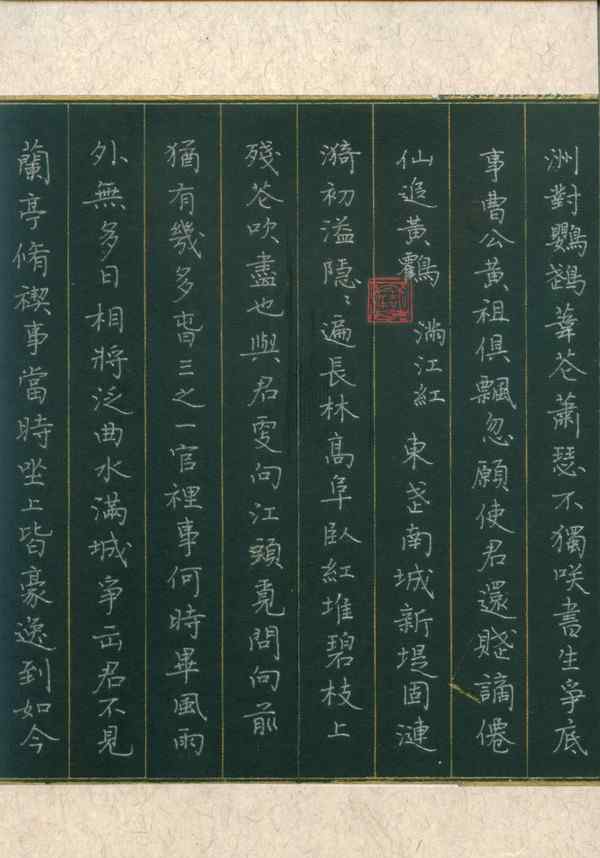 洲對鸚鵡葦苍蕭瑟不獨咲書生爭底
事曹公黃祖俱飄忽願使君還賤謫僊
仙追黃鸖 滿江紅 東武南城新堤固漣
漪初溢隱〻遍長林高阜臥紅堆碧枝上
殘苍吹盡也與君更向江頭覓問向前
猶有幾多春三之一官裡事何時畢風雨
外無多日相將泛曲水滿城爭出君不見
蘭亭脩禊事當時坐上皆豪逸到如今